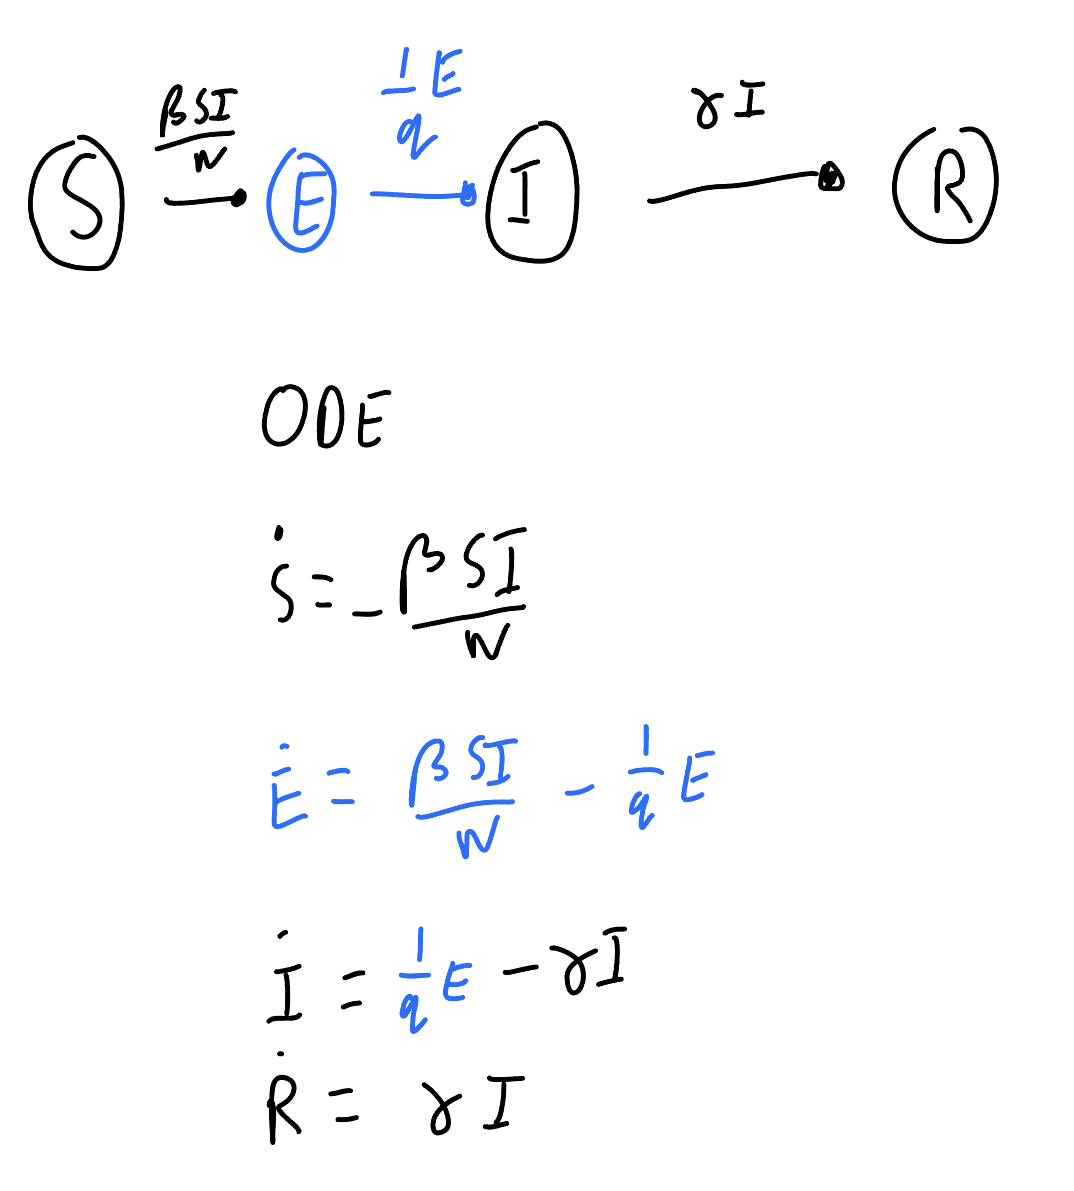 S βSI/N E 1/q E I γI R
ODE
Ṡ = -βSI/N
Ė = βSI/N - 1/q E
İ = 1/q E - γI
Ṙ = γI